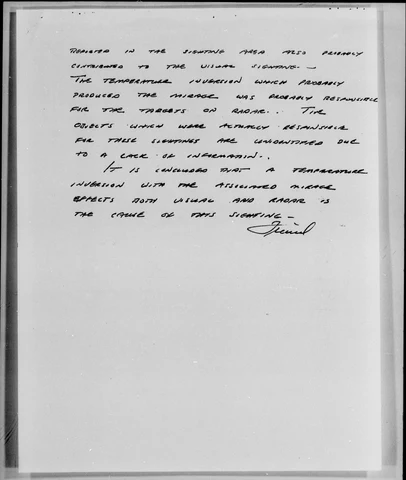 REPORTED IN THE SIGHTING AREA ALSO PROBABLY
CONTRIBUTED TO THE VISUAL SIGHTING -
THE TEMPERATURE INVERSION WHICH PROBABLY
PRODUCED THE MIRAGE WAS PROBABLY RESPONSIBLE
FOR THE TARGETS ON RADAR.. THE
OBJECTS WHICH WERE ACTUALLY RESPONSIBLE
FOR THESE SIGHTINGS ARE UNIDENTIFIED DUE
TO A LACK OF INFORMATION..
IT IS CONCLUDED THAT A TEMPERATURE
INVERSION WITH THE ASSOCIATED MIRAGE
EFFECTS BOTH VISUAL AND RADAR IS
THE CAUSE OF THIS SIGHTING -